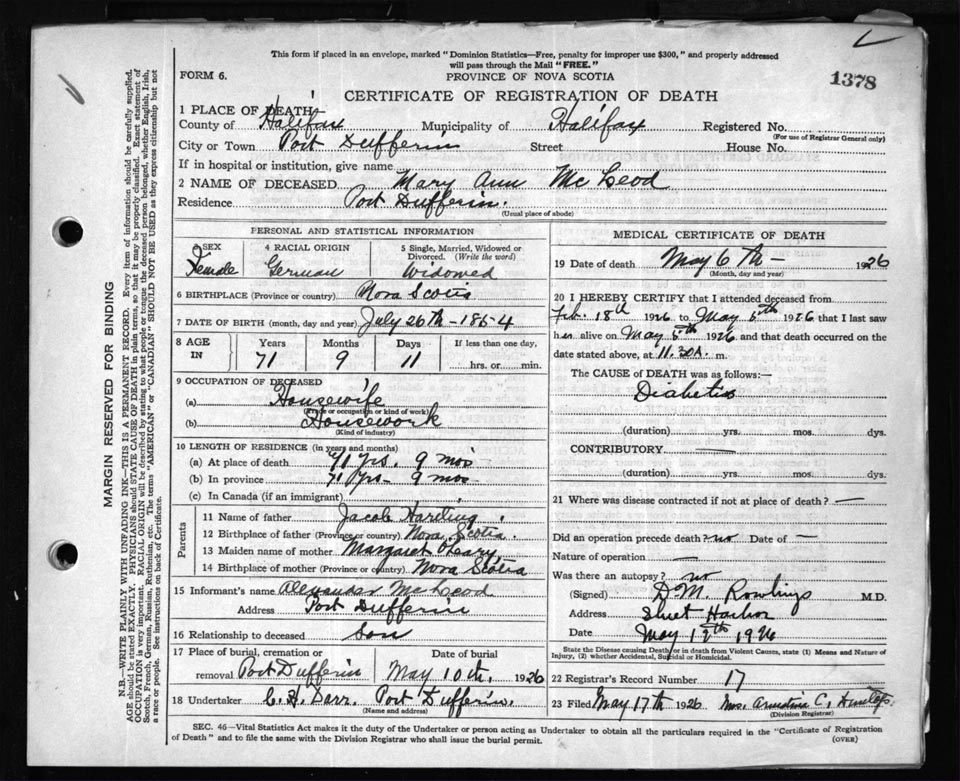 This form if placed in an envelope, marked "Dominion Statistics—Free, penalty for improper use $300," and properly addressed
will pass through the Mail "FREE."
FORM 6.
PROVINCE OF NOVA SCOTIA
1378
CERTIFICATE OF REGISTRATION OF DEATH
1 PLACE OF DEATH
County of Halifax Municipality of Halifax Registered No.
(For use of Registrar General only)
City or Town Port Dufferin Street House No.
If in hospital or institution, give name
2 NAME OF DECEASED Mary Ann McLeod
Residence Port Dufferin.
(Usual place of abode)
PERSONAL AND STATISTICAL INFORMATION
3 SEX 4 RACIAL ORIGIN 5 Single, Married, Widowed or
Divorced. (Write the word)
Female German Widowed
6 BIRTHPLACE (Province or country) Nova Scotia
7 DATE OF BIRTH (month, day and year) July 26th - 1854
8 AGE IN Years Months Days If less than one day,
71 9 11 hrs. or min.
9 OCCUPATION OF DECEASED
(a) Housewife
(Trade or occupation or kind of work)
(b) Housework
(Kind of industry)
10 LENGTH OF RESIDENCE (in years and months)
(a) At place of death 71 yrs. 9 mos
(b) In province 71 yrs - 9 mos -
(c) In Canada (if an immigrant)
Parents
11 Name of father Jacob Hartling
12 Birthplace of father (Province or country) Nova Scotia.
13 Maiden name of mother Margaret O'Leary
14 Birthplace of mother (Province or country) Nova Scotia
15 Informant's name Alexander McLeod
Address Port Dufferin
16 Relationship to deceased Son
17 Place of burial, cremation or Date of burial
removal Port Dufferin May 10th, 1926
18 Undertaker Port Dufferin.
(Name and address)
MEDICAL CERTIFICATE OF DEATH
19 Date of death May 6th - 1926
(Month, day and year)
20 I HEREBY CERTIFY that I attended deceased from
Feb. 18th 1926 to May 5th 1926 that I last saw
her alive on May 5th 1926 and that death occurred on the
date stated above, at 11.30 A. m.
The CAUSE OF DEATH was as follows:—
Diabetis
(duration) yrs. mos. dys.
CONTRIBUTORY —
(duration) yrs. mos. dys.
21 Where was disease contracted if not at place of death? —
Did an operation precede death? no Date of —
Nature of operation —
Was there an autopsy? no
(Signed) D.M. Rowlings M.D.
Address Sheet Harbor
Date May 12th 1926
State the Disease causing Death or in death from Violent Causes, state (1) Means and Nature of
Injury, (2) whether Accidental, Suicidal or Homicidal.
22 Registrar's Record Number 17
23 Filed May 17th 1926 Mrs. C.
(Division Registrar)
SEC. 46—Vital Statistics Act makes it the duty of the Undertaker or person acting as Undertaker to obtain all the particulars required in the "Certificate of Registration
of Death" and to file the same with the Division Registrar who shall issue the burial permit.
(OVER)
MARGIN RESERVED FOR BINDING
N.B.—WRITE PLAINLY WITH UNFADING INK—THIS IS A PERMANENT RECORD. Every item of information should be carefully supplied.
AGE should be stated EXACTLY. PHYSICIANS should STATE CAUSE OF DEATH in plain terms, so that it may be properly classified. Exact statement of
OCCUPATION is very important. RACIAL ORIGIN will be described by stating to what people or tongue the deceased person belonged, whether English, Irish,
Scotch, French, German, Russian, Ruthenian, etc. The terms "AMERICAN" or "CANADIAN" SHOULD NOT BE USED as they express citizenship but not
a race or people. See instructions on back of Certificate.